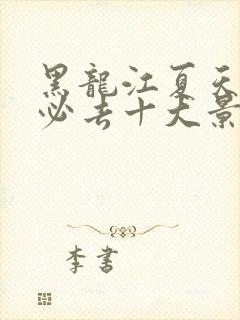 黑龍江夏天
必去十大景
李書